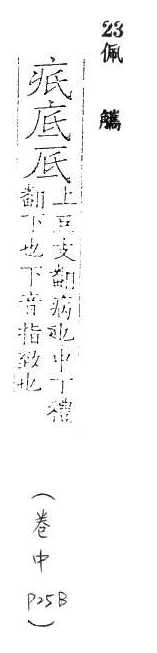 23 佩觿
疧底厎
上巨支翻病也中丁禮
翻下也下音指致也
(卷中 P25B)